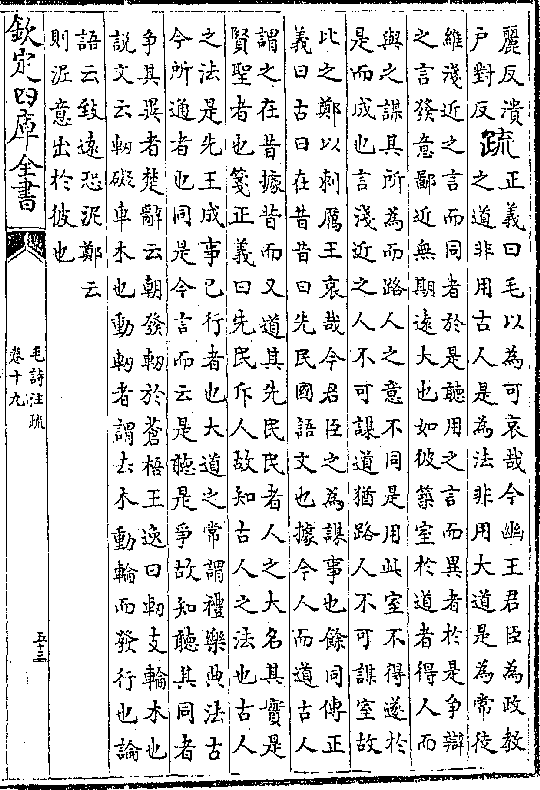 麗反潰
戶對反
疏
正義曰毛以為可哀哉今幽王君臣為政教
之道非用古人是為法非用大道是為常徒
維淺近之言而同者於是聽用之言而異者於是爭辯
之言發意鄙近無期遠大也如彼築室於道者得人而
與之謀其所為而路人之意不同是用此室不得遂於
是而成也言淺近之人不可謀道猶路人不可謀室故
比之鄭以刺厲王哀哉今君臣之為謀事也餘同傳正
義曰古曰在昔昔曰先民國語文也據今人而道古人
謂之在昔據昔而又道其先民民者人之大名其實是
賢聖者也箋正義曰先民斥人故知古人之法也古人
之法是先王成事已行者也大道之常謂禮樂典法古
今所通者也同是今言而云是聽是爭故知聽其同者
爭其異者楚辭云朝發軔於蒼梧王逸曰軔支輪木也
說文云軔礙車木也動軔者謂去木動輪而發行也論
語云致遠恐泥鄭云
則泥意出於彼也
欽定四庫全書
毛詩注疏
卷十九
五十三